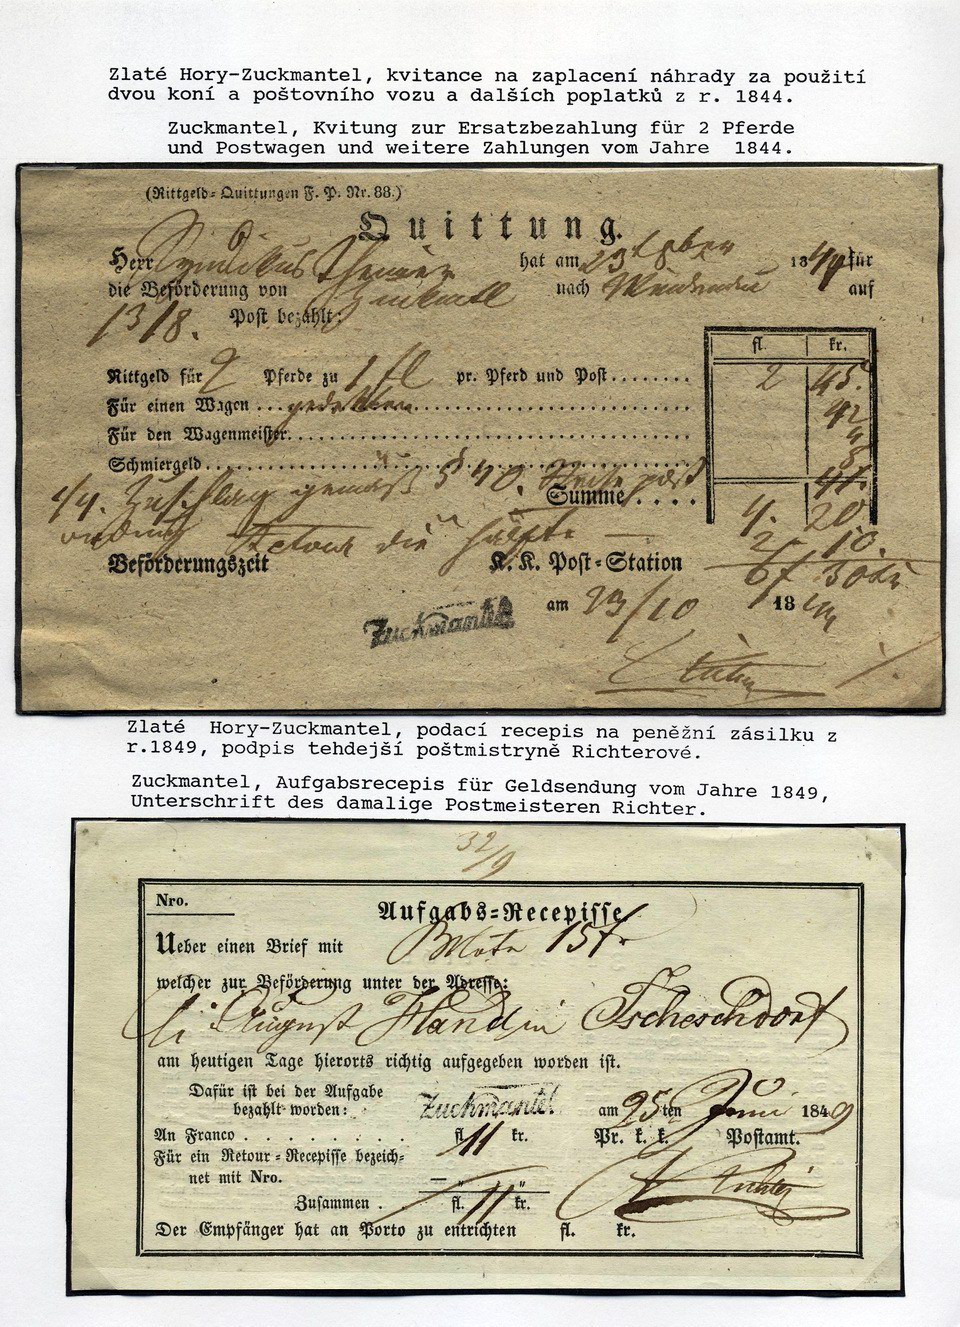 Zlaté Hory-Zuckmantel, kvitance na zaplacení náhrady za použití
dvou koní a poštovního vozu a dalších poplatků z r. 1844.
Zuckmantel, Kvitung zur Ersatzbezahlung für 2 Pferde
und Postwagen und weitere Zahlungen vom Jahre 1844.
(Rittgeld=Quittungen F. P. Nr. 88.)
Quittung.
Herr hat am 23t 8ber 1844 für
die Beförderung von nach auf
1 3/8. Post bezahlt:
fl. kr.
Rittgeld für 2 Pferde zu 1 fl pr. Pferd und Post........ 2 45.
Für einen Wagen ... gedekten 42
Für den Wagenmeister
Schmiergeld
Zuschlag gemäß § 40.
Summe .... 4. 20.
Retour die Hälfte 2 10.
Beförderungszeit K. K. Post=Station 6f 30kr
am 23/10 1844
Zuckmantel
Zlaté Hory-Zuckmantel, podací recepis na peněžní zásilku z
r.1849, podpis tehdejší poštmistryně Richterové.
Zuckmantel, Aufgabsrecepis für Geldsendung vom Jahre 1849,
Unterschrift des damalige Postmeisteren Richter.
32/9
Nro.
Aufgabs=Recepisse
Ueber einen Brief mit 15f
welcher zur Beförderung unter der Adresse:
August Hand in Tscheschdorf
am heutigen Tage hierorts richtig aufgegeben worden ist.
Dafür ist bei der Aufgabe
bezahlt worden: Zuckmantel am 25ten Juni 1849
An Franco . . . . . . . . fl. 11 kr. Pr. k. k. Postamt.
Für ein Retour=Recepisse bezeich=
net mit Nro. — " "
Zusammen . fl. 11 kr. Richter
Der Empfänger hat an Porto zu entrichten fl. kr.